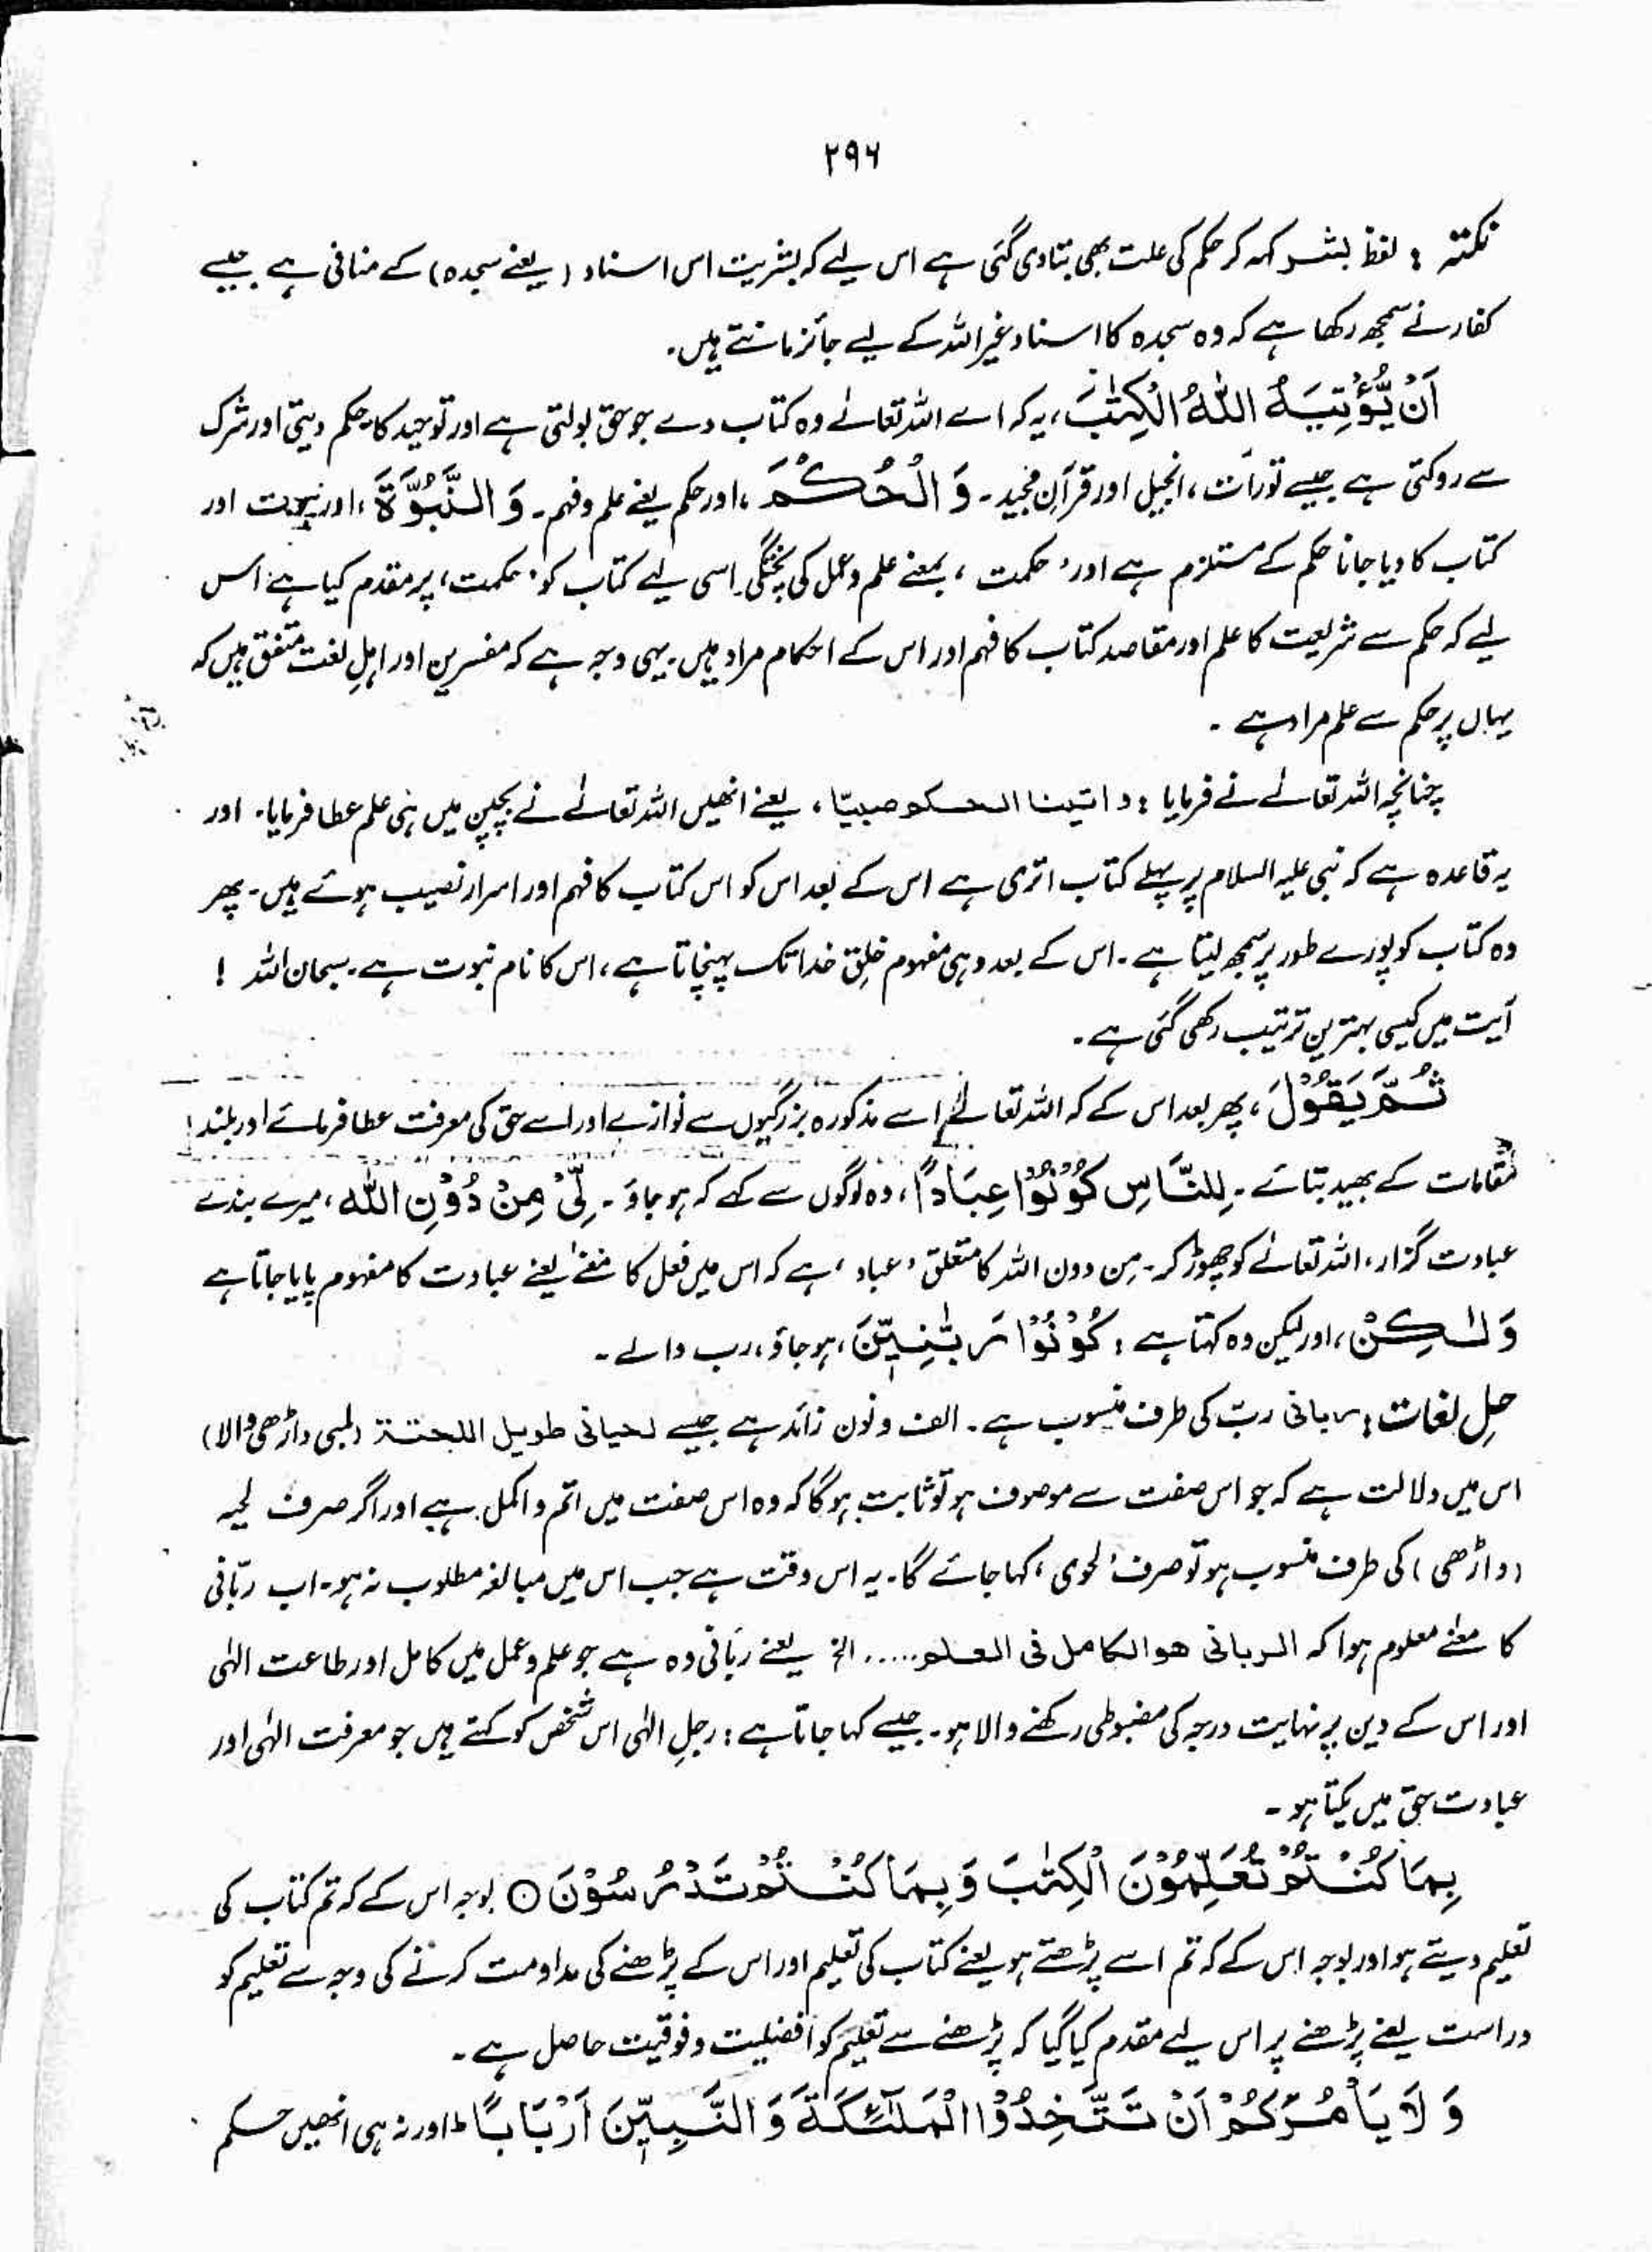 ۲۹۶
نکتہ : لفظ بشر کہہ کر حکم کی علت بھی بتادی گئی ہے اس لیے کہ بشریت اس اسناد (یعنے سجدہ) کے منافی ہے جیسے
کفار نے سمجھ رکھا ہے کہ وہ سجدہ کا اسناد غیر اللہ کے لیے جائز مانتے ہیں۔
اَنْ یُّؤْتِیَہُ اللّٰہُ الْکِتٰبَ، یہ کہ اسے اللہ تعالےٰ وہ کتاب دے جو حق بولتی ہے اور توحید کا حکم دیتی اور شرک
سے روکتی ہے جیسے تورات، انجیل اور قرآنِ مجید۔ وَ الْحُکْمَ، اور حکم یعنے علم و فہم۔ وَ النُّبُوَّۃَ، اور نبوت اور
کتاب کا دیا جانا حکم کے مستلزم ہے اور 'حکمت' بمعنے علم و عمل کی پختگی۔ اسی لیے کتاب کو 'حکمت' پر مقدم کیا ہے اس
لیے کہ حکم سے شریعت کا علم اور مقاصد کتاب کا فہم اور اس کے احکام مراد ہیں۔ یہی وجہ ہے کہ مفسرین اور اہلِ لغت متفق ہیں کہ
یہاں پر حکم سے علم مراد ہے ۔
چنانچہ اللہ تعالےٰ نے فرمایا : و اتینا الحکم صبیّا، یعنے انھیں اللہ تعالےٰ نے بچپن میں ہی علم عطا فرمایا۔ اور
یہ قاعدہ ہے کہ نبی علیہ السلام پر پہلے کتاب اتری ہے اس کے بعد اس کو اس کتاب کا فہم اور اسرار نصیب ہوئے ہیں۔ پھر
وہ کتاب کو پورے طور پر سمجھ لیتا ہے۔ اس کے بعد وہی مفہوم خلقِ خدا تک پہنچاتا ہے، اس کا نام نبوت ہے۔ سبحان اللہ !
آیت میں کیسی بہترین ترتیب رکھی گئی ہے۔
ثُمَّ یَقُوْلَ، پھر بعد اس کے کہ اللہ تعالےٰ اسے مذکورہ بزرگیوں سے نوازے اور اسے حق کی معرفت عطا فرمائے اور بلند
مقامات کے بھید بتائے۔ لِلنَّاسِ کُوْنُوْا عِبَادًا، وہ لوگوں سے کہے کہ ہو جاؤ۔ لِّیْ مِنْ دُوْنِ اللّٰہِ، میرے بندے
عبادت گزار، اللہ تعالےٰ کو چھوڑ کر۔ مِن دون اللہ کا متعلق 'عباد' ہے کہ اس میں فعل کا معنےٰ یعنے عبادت کا مفہوم پایا جاتا ہے
وَلٰکِنْ، اور لیکن وہ کہتا ہے : کُوْنُوْا رَبّٰنِیّٖنَ، ہو جاؤ، رب والے ۔
حلِ لغات : ربانی ربّ کی طرف منسوب ہے۔ الف و نون زائد ہے جیسے لحیانی طویل اللحیۃ (لمبی داڑھی والا)
اس میں دلالت ہے کہ جو اس صفت سے موصوف ہو تو ثابت ہوگا کہ وہ اس صفت میں اتم و اکمل ہے اور اگر صرف لحیہ
(داڑھی) کی طرف منسوب ہو تو صرف 'لحوی' کہا جائے گا۔ یہ اس وقت ہے جب اس میں مبالغہ مطلوب نہ ہو۔ اب ربّانی
کا معنےٰ معلوم ہوا کہ الربانی ھو الکامل فی العلم..... الخ یعنے ربّانی وہ ہے جو علم و عمل میں کامل اور طاعت الٰہی
اور اس کے دین پر نہایت درجہ کی مضبوطی رکھنے والا ہو۔ جیسے کہا جاتا ہے : رجلِ الٰہی اس شخص کو کہتے ہیں جو معرفت الٰہی اور
عبادت حق میں یکتا ہو ۔
بِمَا کُنْتُمْ تُعَلِّمُوْنَ الْکِتٰبَ وَ بِمَا کُنْتُمْ تَدْرُسُوْنَ ○ بوجہ اس کے کہ تم کتاب کی
تعلیم دیتے ہو اور بوجہ اس کے کہ تم اسے پڑھتے ہو یعنے کتاب کی تعلیم اور اس کے پڑھنے کی مداومت کرنے کی وجہ سے تعلیم کو
دراست یعنے پڑھنے پر اس لیے مقدم کیا گیا کہ پڑھنے سے تعلیم کو افضلیت و فوقیت حاصل ہے ۔
وَ لَا یَاْمُرَکُمْ اَنْ تَتَّخِذُوا الْمَلٰٓئِکَۃَ وَ النَّبِیّٖنَ اَرْبَابًا ؕ اور نہ ہی انھیں حکم